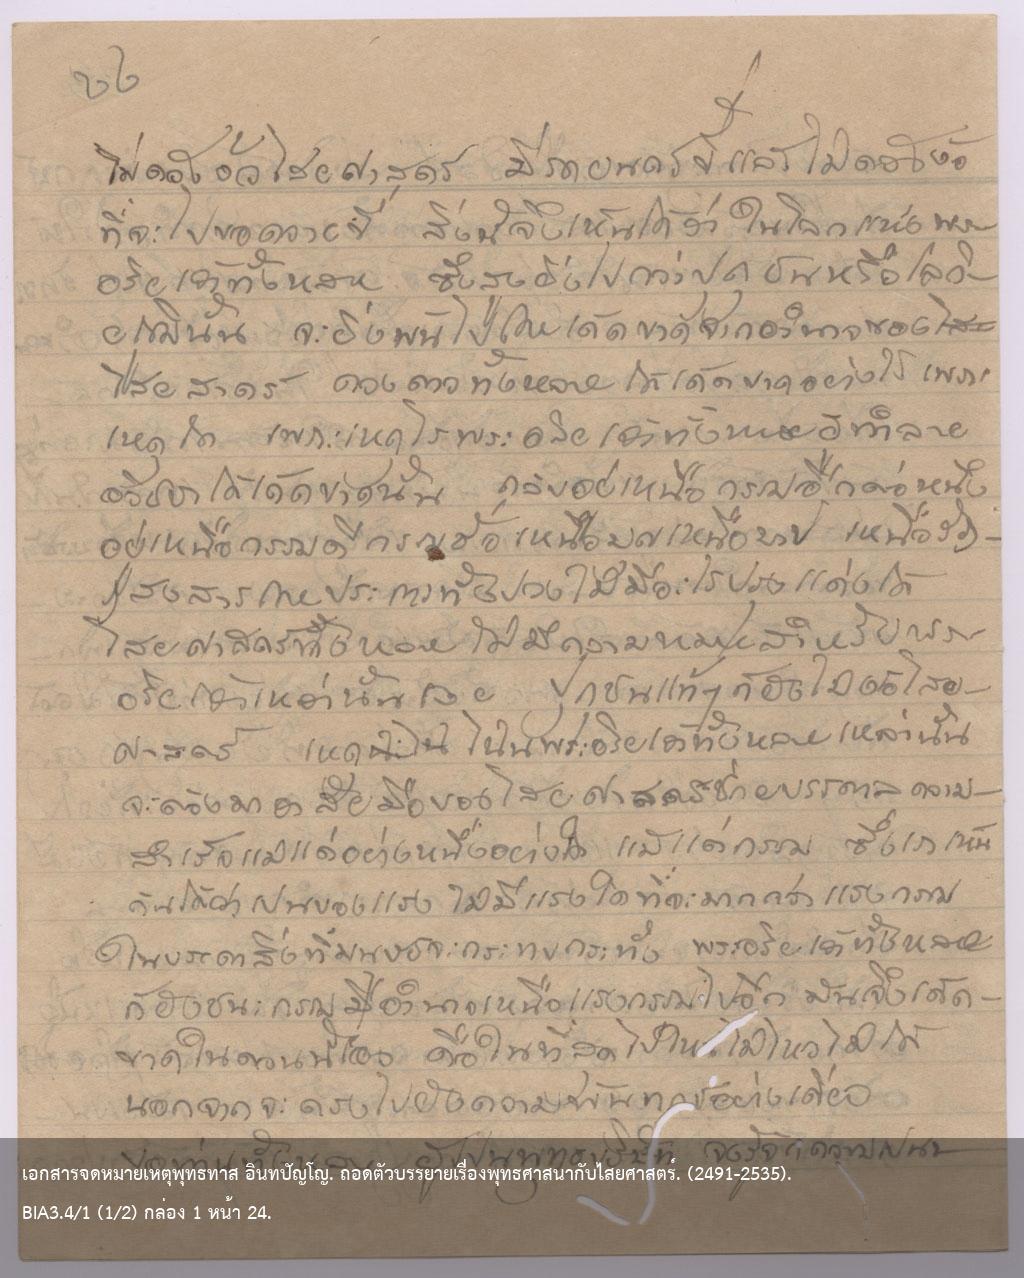 ๒๖
ไม่ต้องอ้อไสยศาสตร์ มีรถยนตร์ขี่แล้วไม่ต้องง้อ
ที่จะไปขอควายขี่ สิ่งนี้จึงเห็นได้ว่า ในโลกแห่งพระ
อริยเจ้าทั้งหลาย ซึ่งสูงยิ่งไปกว่าปุถุชนหรือโลกิ-
ยเหล่านั้น จะยิ่งพ้นไป เด็ดขาดจากอำนาจของ
ไสยสาตร์ ดวงดาวทั้งหลาย ได้เด็ดขาดอย่างไร เพราะ
เหตุใด เพราะเหตุไรพระอริยเจ้าทั้งหลายผู้ทำลาย
อวิชชาได้เด็ดขาดนั้น กลับอยู่เหนือกรรมอีกต่อหนึ่ง
อยู่เหนือกรรมดีกรรมชั่ว เหนือบุญเหนือบาป เหนือวัฏ-
สงสารโดยประการทั้งปวง ไม่มีอะไรปรุงแต่งได้
ไสยศาสตร์ทั้งหลายไม่มีความหมายสำหรับพระ
อริยเจ้าเหล่านั้นเลย ปุถุชนแท้ๆ ก็ยังไม่ง้อไสย-
ศาสตร์ เหตุไฉน พระอริยเจ้าทั้งหลายเหล่านั้น
จะต้องมาอาศัยมือของไสยศาสตร์ช่วยบรรดาลความ-
สำเร็จแม้แต่อย่างหนึ่งอย่างใด แม้แต่กรรม ซึ่งเราเห็น
กันได้ว่าเป็นของแรง ไม่มีแรงใดที่จะมากกว่าแรงกรรม
ในบรรดาสิ่งที่มนุษย์จะกระทบกระทั่ง พระอริยเจ้าทั้งหลาย
ก็ยังชนะกรรมมีอำนาจเหนือแรงกรรมไปอีก มันจึงเด็ด-
ขาดในตอนนี้เอง คือในที่สุดไปไหนไม่ไหวไม่ได้
นอกจากจะตรงไปยังความพ้นทุกข์อย่างเดียว
เอกสารจดหมายเหตุพุทธทาส อินทปัญโญ. ถอดตัวบรรยายเรื่องพุทธศาสนากับไสยศาสตร์. (2491-2535).
BIA3.4/1 (1/2) กล่อง 1 หน้า 24.